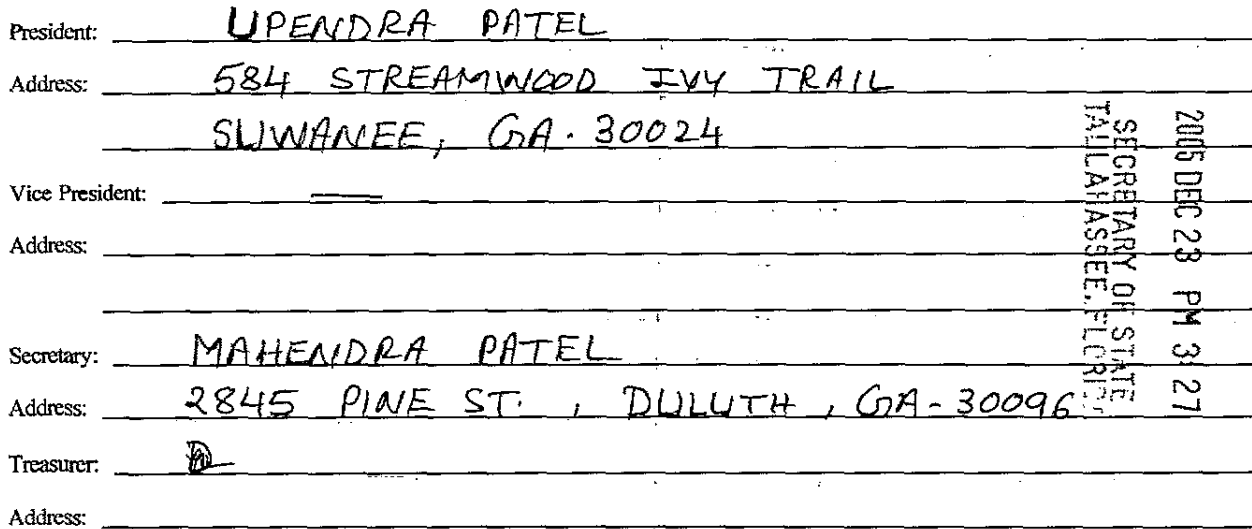 President: UPENDRA PATEL
Address: 584 STREAMWOOD IVY TRAIL
SUWANEE, GA. 30024
Vice President:
Address:
Secretary: MAHENDRA PATEL
Address: 2845 PINE ST. , DULUTH , GA-30096
Treasurer:
Address:
2005 DEC 23 PM 3:27
SECRETARY OF STATE
TALLAHASSEE, FLORIDA